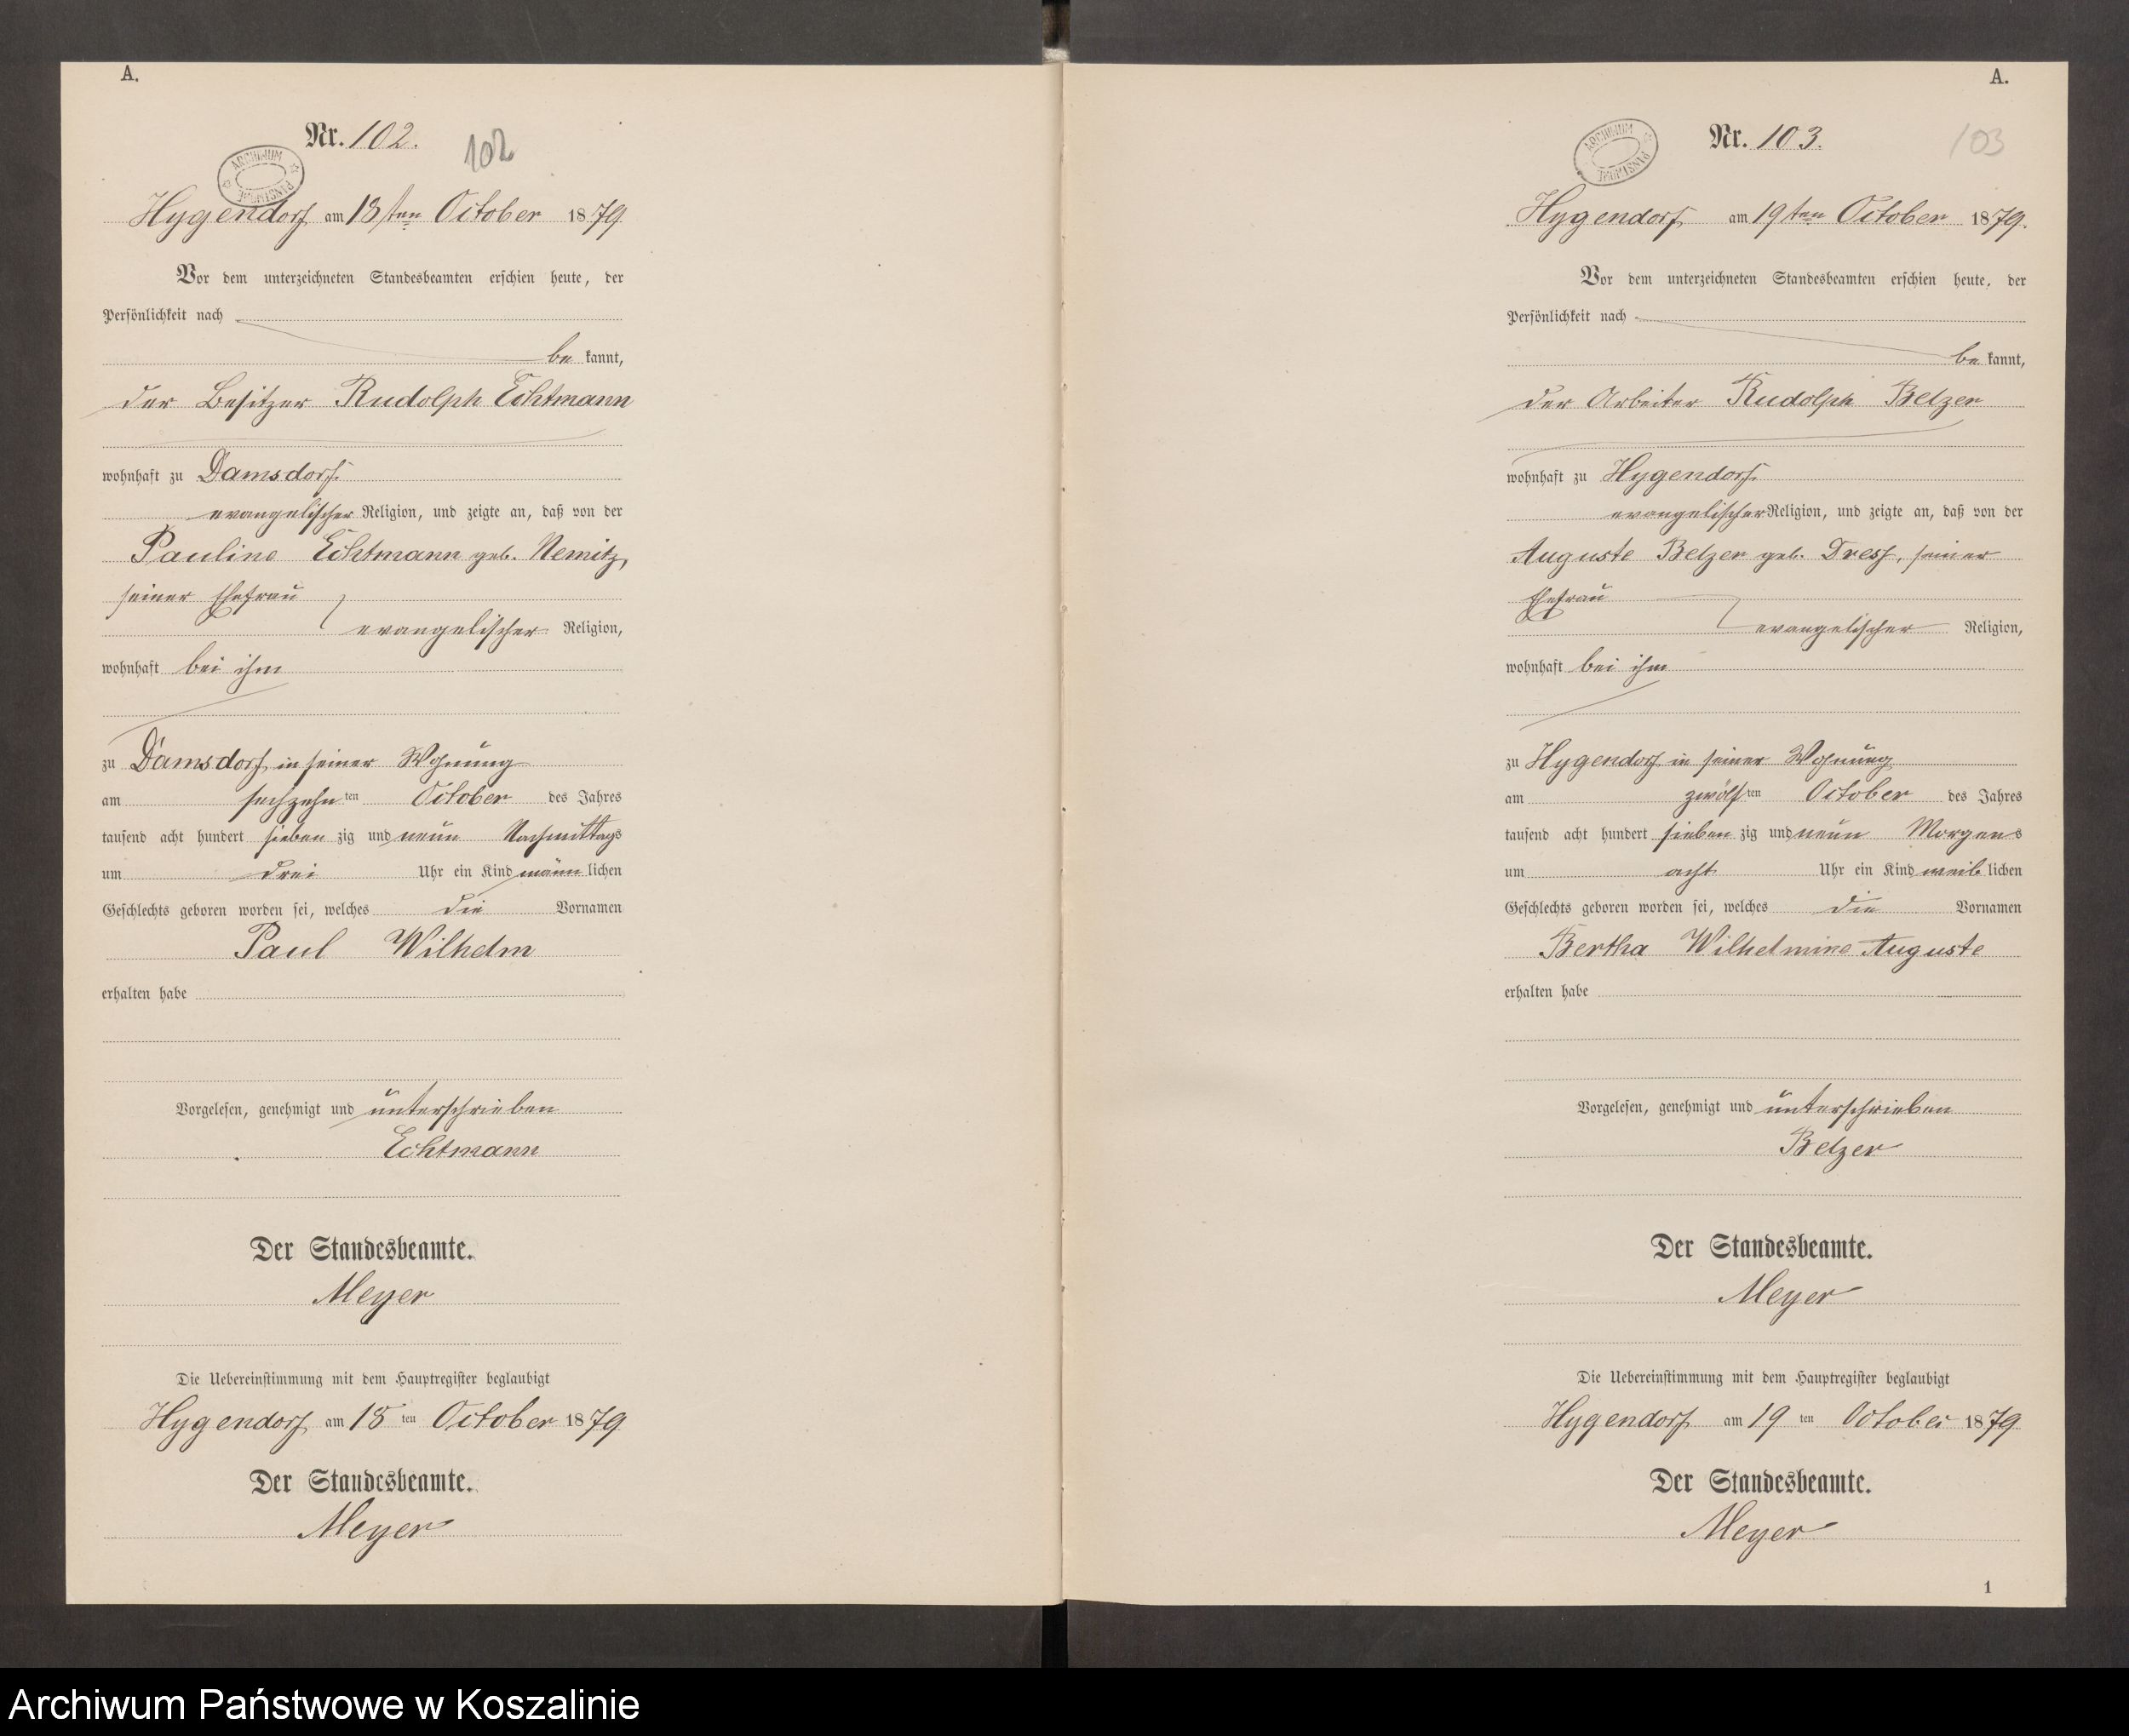 A.
Nr. 102.
102
ARCHIWUM PAŃSTWOWE
Hygendorf am 18ten October 1879
Vor dem unterzeichneten Standesbeamten erschien heute, der
Persönlichkeit nach
be kannt,
der Besitzer Rudolph Echtmann
wohnhaft zu Damsdorf.
evangelischer Religion, und zeigte an, daß von der
Pauline Echtmann geb. Nemitz,
seiner Ehefrau
evangelischer Religion,
wohnhaft bei ihm
zu Damsdorf in seiner Wohnung
am sechzehn ten October des Jahres
tausend acht hundert sieben zig und neun Nachmittags
um drei Uhr ein Kind männ lichen
Geschlechts geboren worden sei, welches die Vornamen
Paul Wilhelm
erhalten habe
Vorgelesen, genehmigt und unterschrieben
Echtmann
Der Standesbeamte.
Meyer
Die Uebereinstimmung mit dem Hauptregister beglaubigt
Hygendorf am 18 ten October 1879
Der Standesbeamte.
Meyer
A.
Nr. 103.
103
ARCHIWUM PAŃSTWOWE
Hygendorf am 19ten October 1879.
Vor dem unterzeichneten Standesbeamten erschien heute, der
Persönlichkeit nach
be kannt,
der Arbeiter Rudolph Belzer
wohnhaft zu Hygendorf.
evangelischer Religion, und zeigte an, daß von der
Auguste Belzer geb. Dress, seiner
Ehefrau
evangelischer Religion,
wohnhaft bei ihm
zu Hygendorf in seiner Wohnung
am zwölf ten October des Jahres
tausend acht hundert sieben zig und neun Morgens
um acht Uhr ein Kind weib lichen
Geschlechts geboren worden sei, welches die Vornamen
Bertha Wilhelmine Auguste
erhalten habe
Vorgelesen, genehmigt und unterschrieben
Belzer
Der Standesbeamte.
Meyer
Die Uebereinstimmung mit dem Hauptregister beglaubigt
Hygendorf am 19 ten October 1879
Der Standesbeamte.
Meyer
1
Archiwum Państwowe w Koszalinie